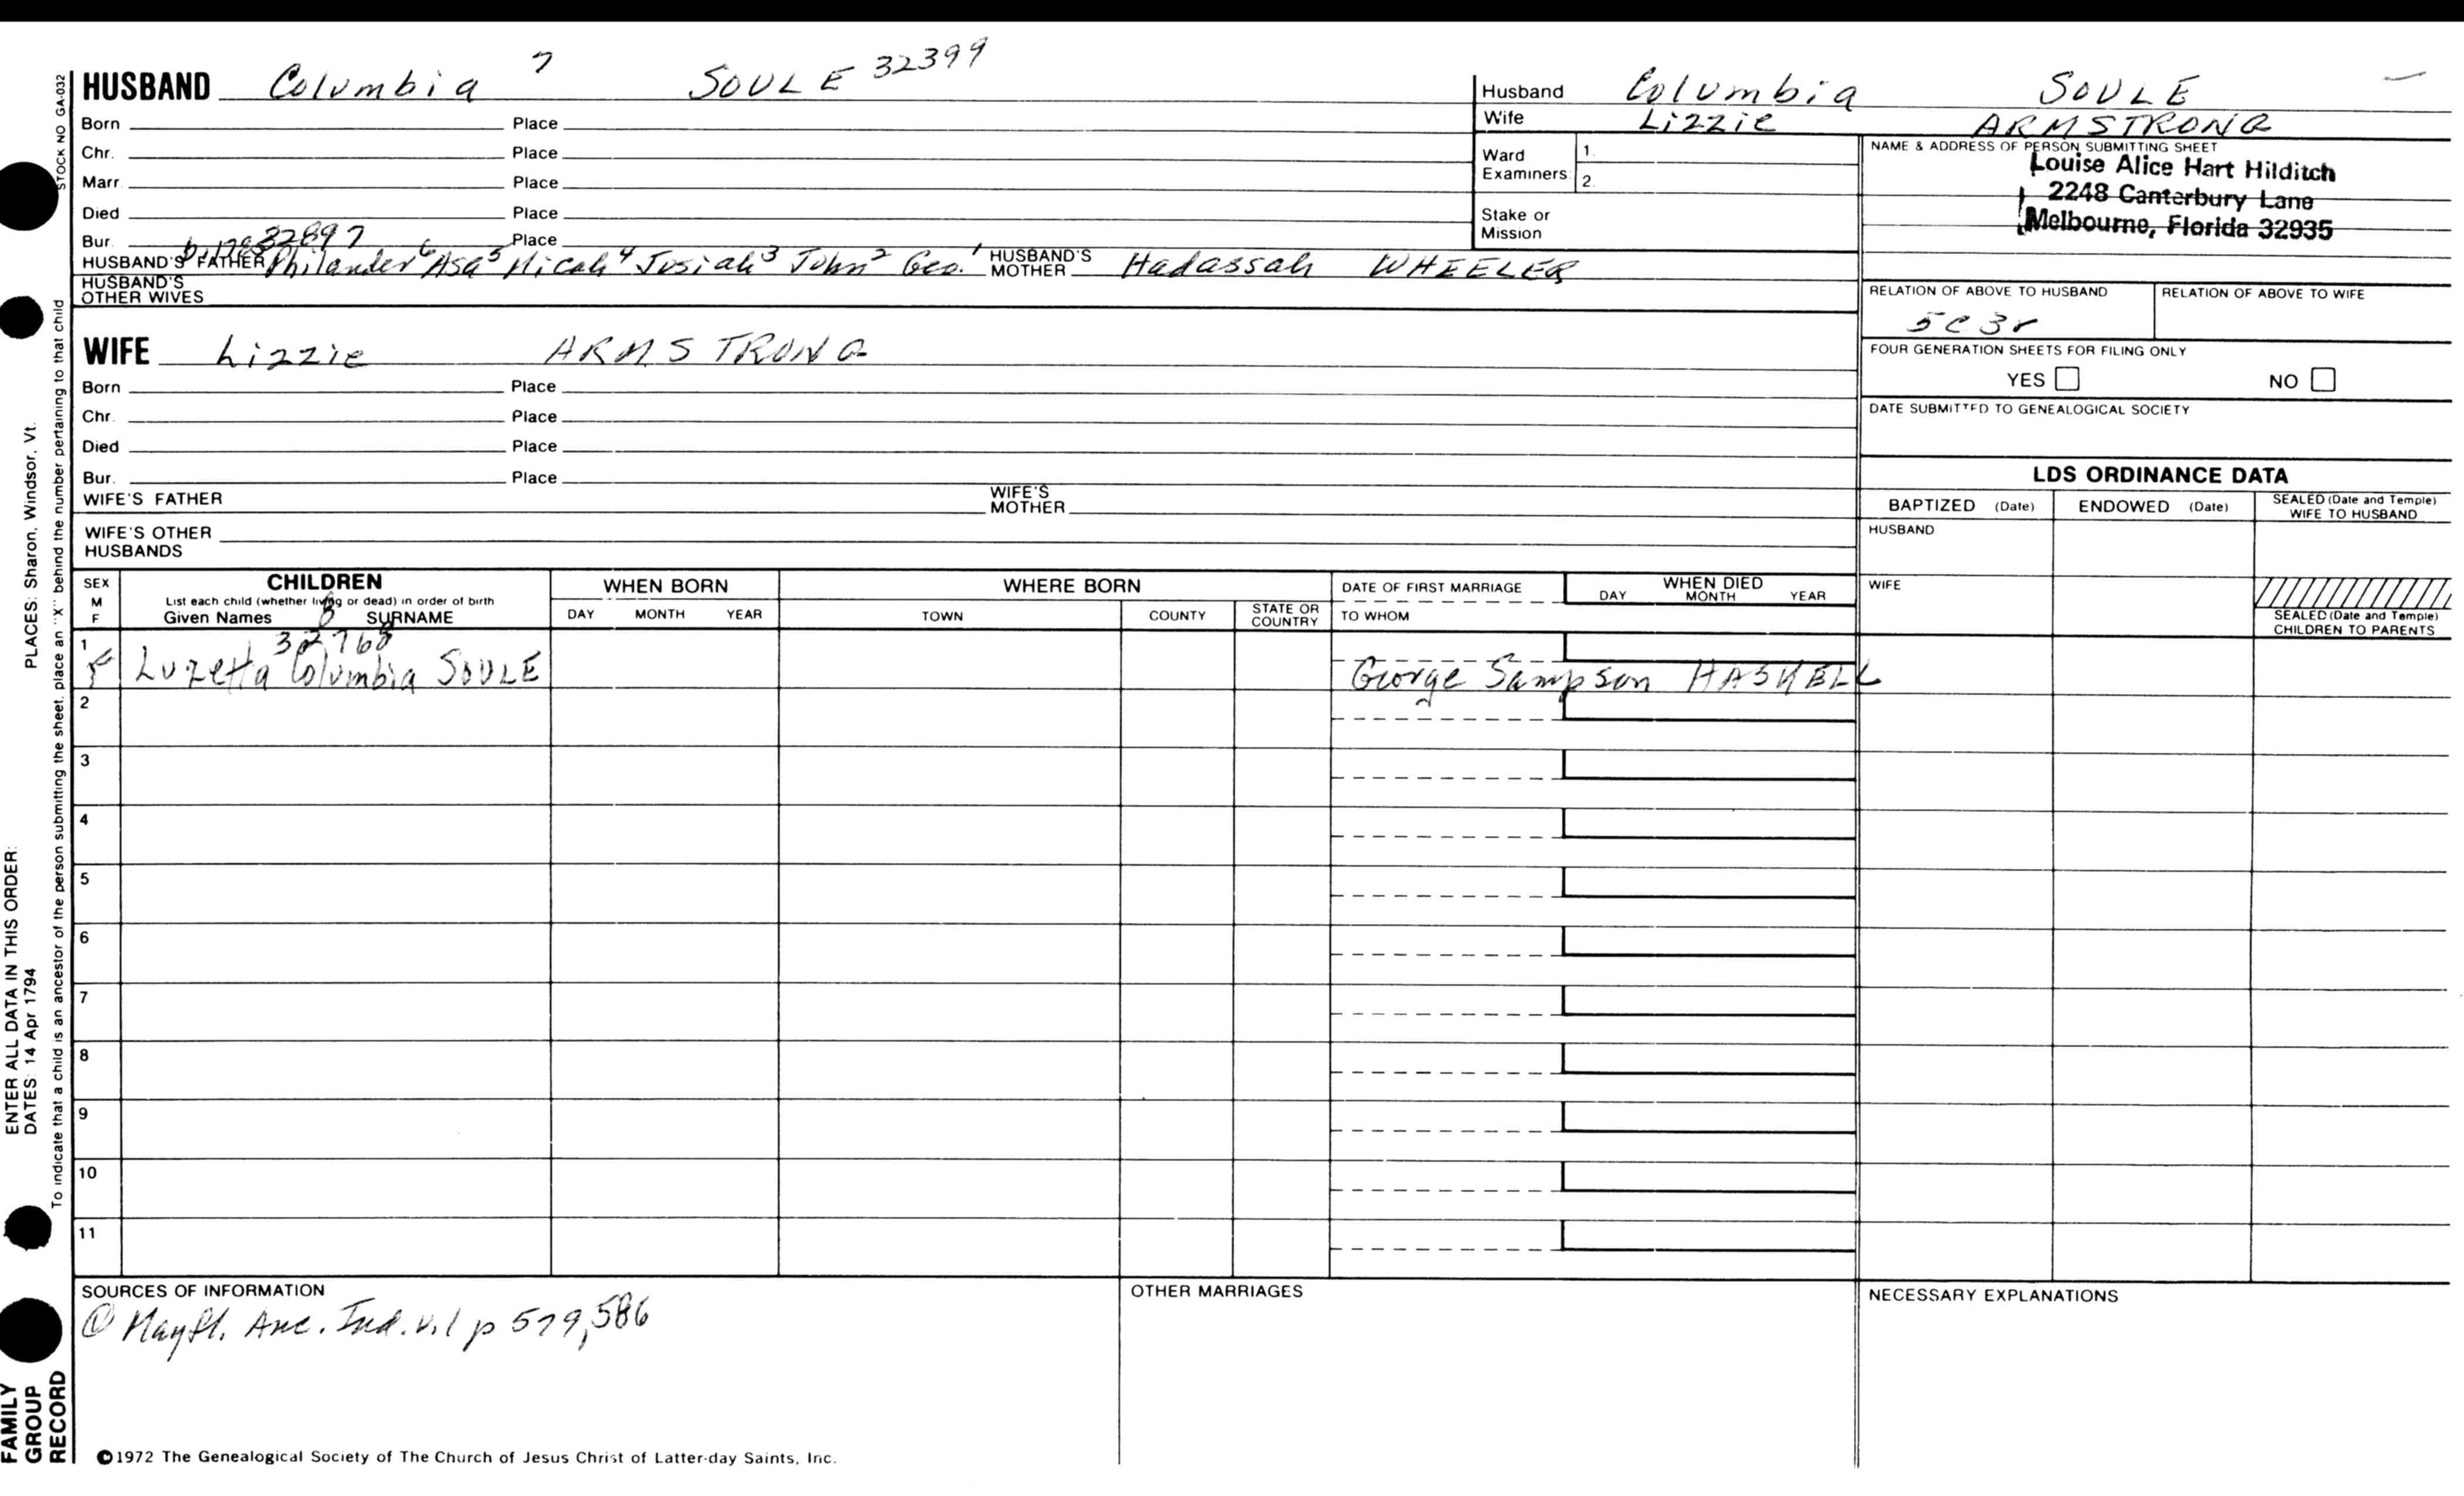 HUSBAND Columbia 7 SOULE 32399
Born Place
Chr. Place
Marr. Place
Died Place
Bur. Place
32897
HUSBAND'S FATHER Philander 6 Asa 5 Micah 4 Josiah 3 John 2 Geo. 1 HUSBAND'S MOTHER Hadassah WHEELER
HUSBAND'S OTHER WIVES
WIFE Lizzie ARMSTRONG
Born Place
Chr. Place
Died Place
Bur. Place
WIFE'S FATHER WIFE'S MOTHER
WIFE'S OTHER HUSBANDS
Husband Columbia SOULE
Wife Lizzie ARMSTRONG
Ward Examiners 1. 2.
Stake or Mission
NAME & ADDRESS OF PERSON SUBMITTING SHEET
Louise Alice Hart Hilditch
2248 Canterbury Lane
Melbourne, Florida 32935
RELATION OF ABOVE TO HUSBAND RELATION OF ABOVE TO WIFE
5C3r
FOUR GENERATION SHEETS FOR FILING ONLY
YES NO
DATE SUBMITTED TO GENEALOGICAL SOCIETY
LDS ORDINANCE DATA
BAPTIZED (Date) ENDOWED (Date) SEALED (Date and Temple) WIFE TO HUSBAND
HUSBAND
WIFE
SEALED (Date and Temple) CHILDREN TO PARENTS
SEX M F
CHILDREN
List each child (whether living or dead) in order of birth
Given Names SURNAME
WHEN BORN
DAY MONTH YEAR
WHERE BORN
TOWN COUNTY STATE OR COUNTRY
DATE OF FIRST MARRIAGE
TO WHOM
WHEN DIED
DAY MONTH YEAR
8
32768
1 F Luzetta Columbia SOULE George Sampson HASKELL
2
3
4
5
6
7
8
9
10
11
SOURCES OF INFORMATION
① Mayfl. Anc. Ind. v.1 p 579,586
OTHER MARRIAGES
NECESSARY EXPLANATIONS
©1972 The Genealogical Society of The Church of Jesus Christ of Latter-day Saints, Inc.
STOCK NO GA-032
To indicate that a child is an ancestor of the person submitting the sheet, place an "X" behind the number pertaining to that child
ENTER ALL DATA IN THIS ORDER:
DATES: 14 Apr 1794 PLACES: Sharon, Windsor, Vt.
FAMILY
GROUP
RECORD